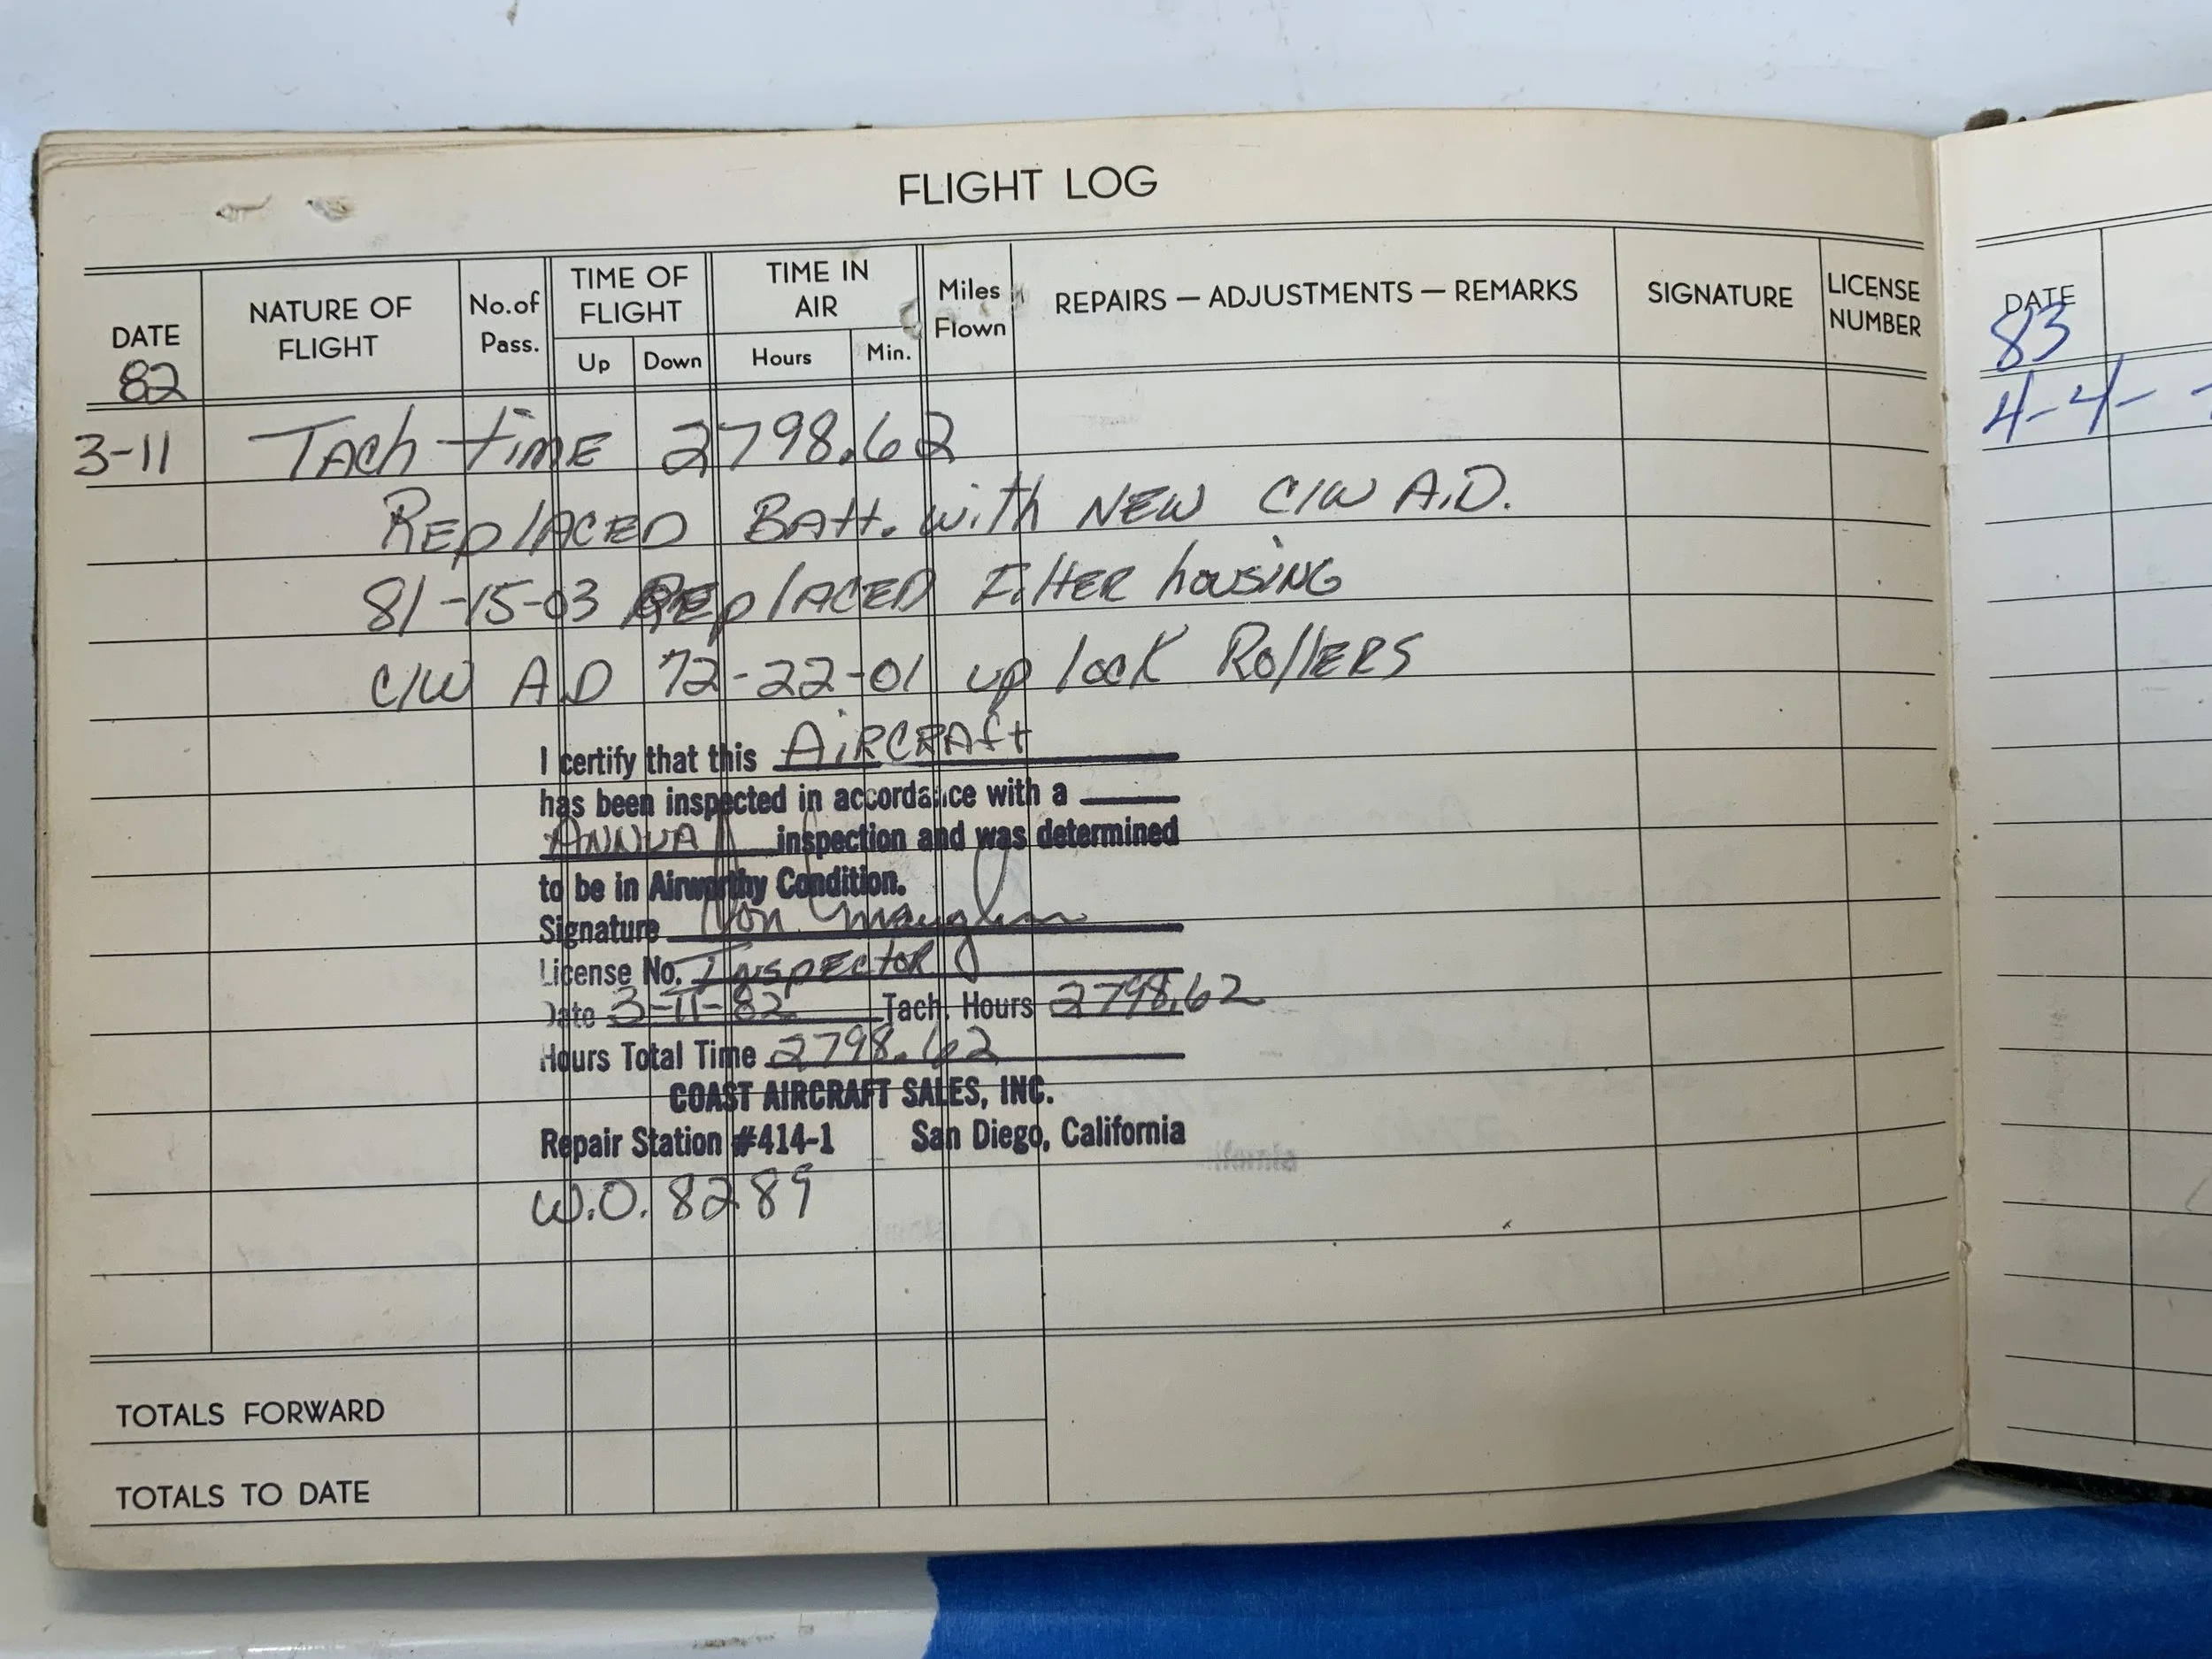 FLIGHT LOG
DATE
82
NATURE OF FLIGHT
No. of Pass.
TIME OF FLIGHT
Up
Down
TIME IN AIR
Hours
Min.
Miles Flown
REPAIRS — ADJUSTMENTS — REMARKS
SIGNATURE
LICENSE NUMBER
3-11 Tach time 2798.62
Replaced Batt. with NEW C/W A.D.
81-15-03 Replaced Filter housing
C/W A.D 72-22-01 up lock Rollers
I certify that this Aircraft
has been inspected in accordance with a
Annual inspection and was determined
to be in Airworthy Condition.
Signature
License No. Inspector
Date 3-11-82 Tach. Hours 2798.62
Hours Total Time 2798.62
COAST AIRCRAFT SALES, INC.
Repair Station #414-1 San Diego, California
W.O. 8289
TOTALS FORWARD
TOTALS TO DATE
DATE
83
4-4-